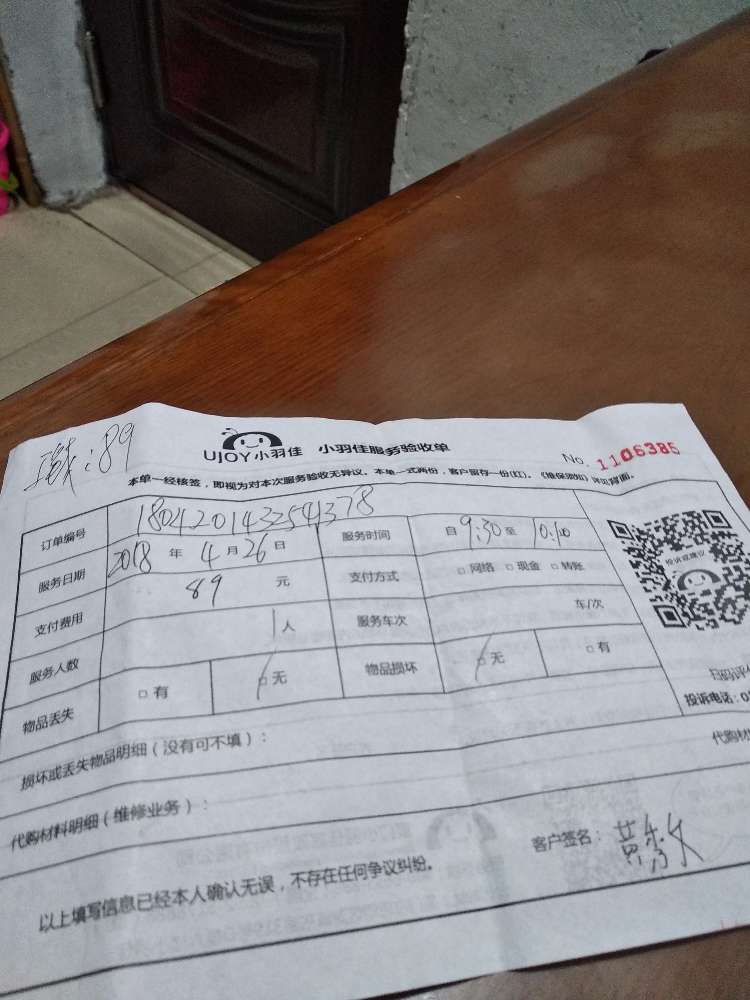 :89
UJOY小羽佳 小羽佳服务验收单
No. 1106385
本单一经核签，即视为对本次服务验收无异议。本单一式两份，客户留存一份(红)。《维保须知》详见背面。
订单编号 180420143254378
服务日期 2018 年 4 月 26 日 服务时间 自 9:30 至 10:10
支付费用 89 元 支付方式 □ 网络 □ 现金 □ 转账
服务人数 1 人 服务车次 车/次
物品丢失 □ 有 □ 无 物品损坏 □ 无 □ 有
投诉或建议
扫码评
投诉电话：0
损坏或丢失物品明细（没有可不填）：
代购材料明细（维修业务）：
代购材
客户签名：
以上填写信息已经本人确认无误，不存在任何争议纠纷。